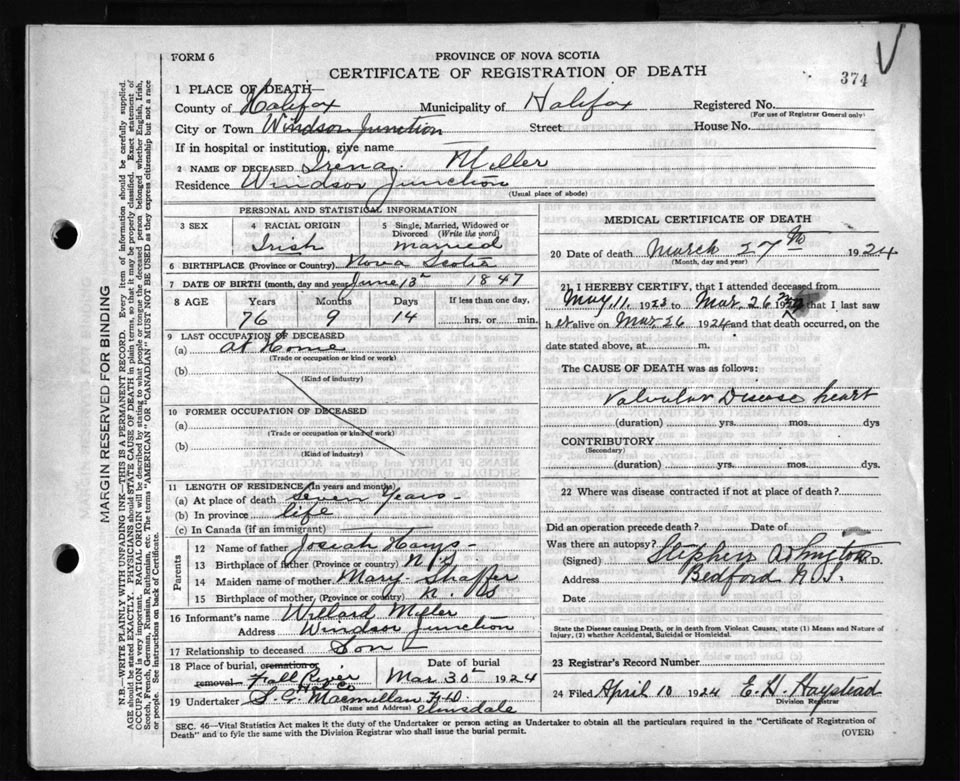 FORM 6
PROVINCE OF NOVA SCOTIA
CERTIFICATE OF REGISTRATION OF DEATH
374
1 PLACE OF DEATH—
County of Halifax Municipality of Halifax Registered No.
(For use of Registrar General only)
City or Town Windsor Junction Street House No.
If in hospital or institution, give name
2 NAME OF DECEASED Irena Miller
Residence Windsor Junction
(Usual place of abode)
PERSONAL AND STATISTICAL INFORMATION
3 SEX 4 RACIAL ORIGIN 5 Single, Married, Widowed or Divorced (Write the word)
Irish married
6 BIRTHPLACE (Province or Country) Nova Scotia
7 DATE OF BIRTH (month, day and year) June 13th 1847
8 AGE Years Months Days If less than one day,
76 9 14 hrs. or min.
9 LAST OCCUPATION OF DECEASED
(a) At Home
(Trade or occupation or kind or work)
(b)
(Kind of industry)
10 FORMER OCCUPATION OF DECEASED
(a)
(Trade or occupation or kind of work)
(b)
(Kind of industry)
11 LENGTH OF RESIDENCE (In years and months)
(a) At place of death Seven Years
(b) In province life
(c) In Canada (if an immigrant)
Parents
12 Name of father Josiah Hays
13 Birthplace of father (Province or country) N.S
14 Maiden name of mother Mary Shaffer
15 Birthplace of mother (Province or country) N. S
16 Informant's name Willard Miller
Address Windsor Junction
17 Relationship to deceased Son
18 Place of burial, cremation or removal Fall River Hx Co Date of burial Mar 30th 1924
19 Undertaker S. C. Macmillan
(Name and Address) Elmsdale
MEDICAL CERTIFICATE OF DEATH
20 Date of death March 27th 1924
(Month, day and year)
21 I HEREBY CERTIFY, that I attended deceased from
May 11, 1923 to Mar. 26 that I last saw
her alive on Mar. 26 1924 and that death occurred, on the
date stated above, at m.
The CAUSE OF DEATH was as follows:
Valvular Disease heart
(duration) yrs. mos. dys
CONTRIBUTORY
(Secondary)
(duration) yrs. mos. dys.
22 Where was disease contracted if not at place of death?
Did an operation precede death? Date of
Was there an autopsy?
(Signed) Stephen M.D.
Address Bedford N.S.
Date
State the Disease causing Death, or in death from Violent Causes, state (1) Means and Nature of
Injury, (2) whether Accidental, Suicidal or Homicidal.
23 Registrar's Record Number
24 Filed April 10 1924 E. H. Haystead
Division Registrar
SEC. 46—Vital Statistics Act makes it the duty of the Undertaker or person acting as Undertaker to obtain all the particulars required in the "Certificate of Registration of
Death" and to fyle the same with the Division Registrar who shall issue the burial permit.
(OVER)
MARGIN RESERVED FOR BINDING
N. B.—WRITE PLAINLY WITH UNFADING INK—THIS IS A PERMANENT RECORD. Every item of information should be carefully supplied.
AGE should be stated EXACTLY. PHYSICIANS should STATE CAUSE OF DEATH in plain terms, so that it may be properly classified. Exact statement of
OCCUPATION is very important. RACIAL ORIGIN will be described by stating to what people or tongue the deceased person belonged whether English, Irish,
Scotch, French, German, Russian, Ruthenian, etc. The terms "AMERICAN" or "CANADIAN" MUST NOT BE USED as they express citizenship but not a race
or people. See instructions on back of Certificate.